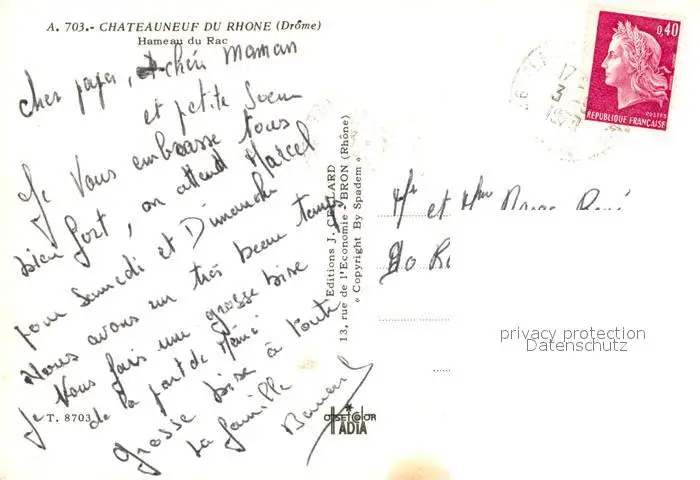 A. 703.- CHATEAUNEUF DU RHONE (Drôme)
Hameau du Rac
cher papa, chéri Maman
et petite Soeur
Je Vous embrasse tous
bien fort, on attend Marcel
pour Samedi et Dimanche
Nous avons un très beau temps
Je Vous fais une grosse bise
de la part de Mémé
grosse bise à toute
La famille
T. 8703
Editions J. CELLARD
13, rue de l'Economie - BRON (Rhône)
« Copyright By Spadem »
OFFSETCOLOR
IADIA
0,40
POSTES
REPUBLIQUE FRANÇAISE
17
3
Mr et Mme René
privacy protection
Datenschutz